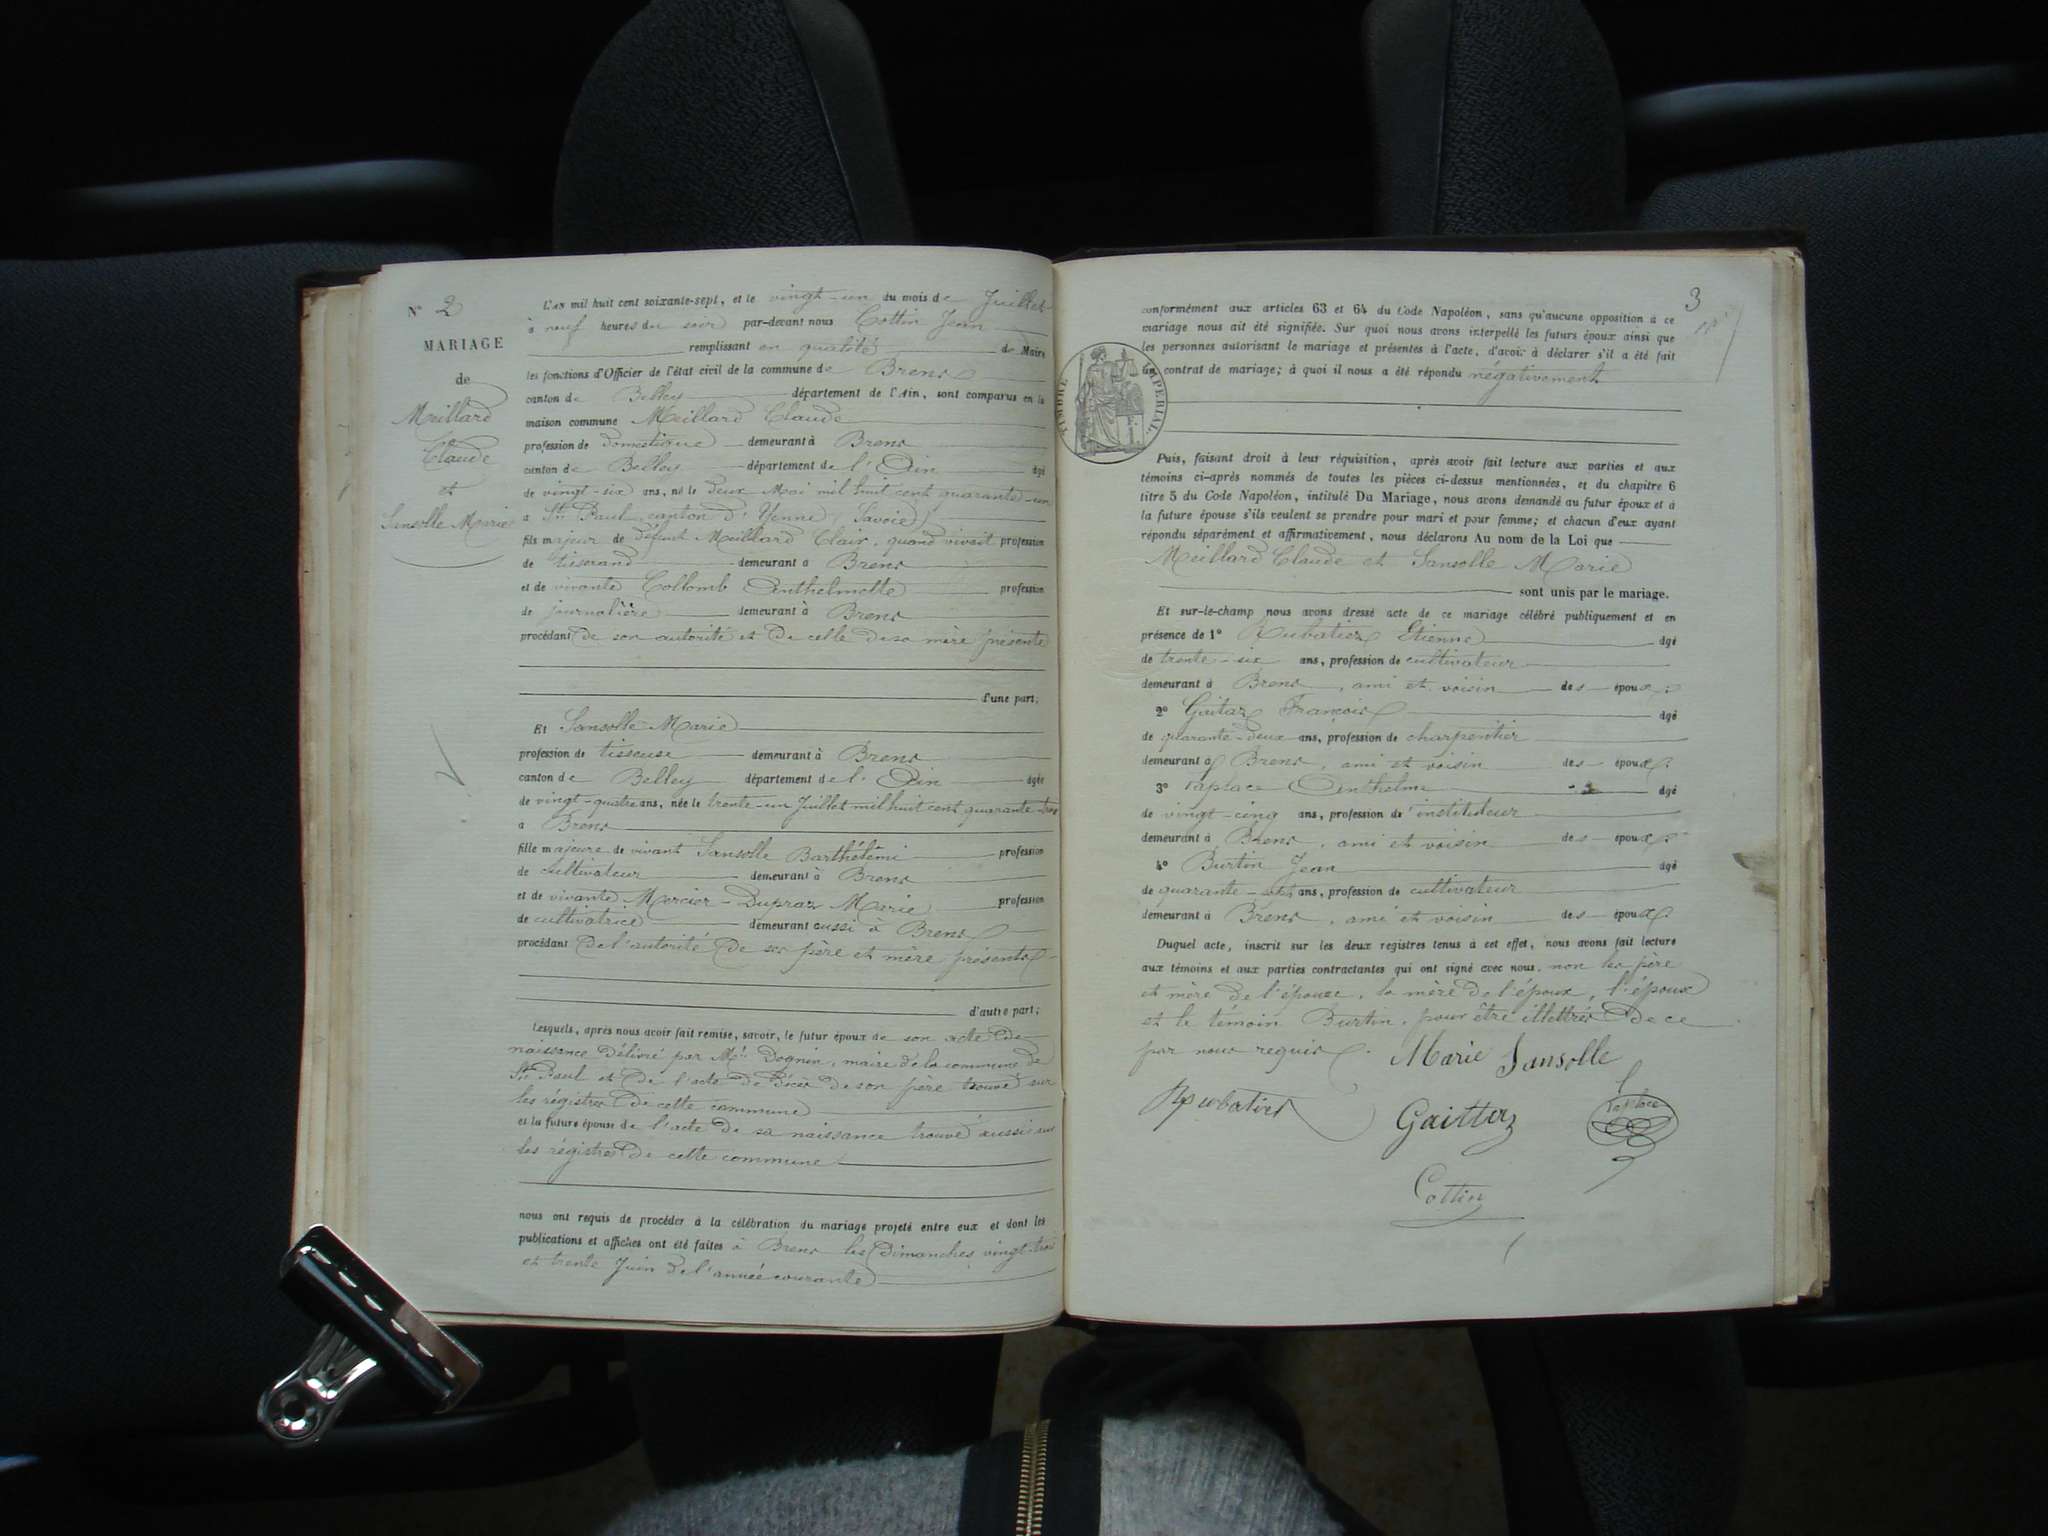 N° 2
MARIAGE
de
Meillard
Claude
et
Sansolle Marie
L'AN mil huit cent soixante-sept, et le vingt-un du mois de Juillet
à neuf heures du soir par-devant nous Cottin Jean
remplissant en qualité de Maire
les fonctions d'Officier de l'état civil de la commune de Brens
canton de Belley département de l'Ain, sont comparus en la
maison commune Meillard Claude
profession de domestique demeurant à Brens
canton de Belley département de l'Ain âgé
de vingt-six ans, né le deux Mai mil huit cent quarante-un
à St Paul, canton d'Yenne (Savoie)
fils majeur de défunt Meillard Clair, quand vivait profession
de tisserand demeurant à Brens
et de vivante Collomb Anthelmette profession
de journalière demeurant à Brens
procédant de son autorité et de celle de sa mère présente
d'une part;
Et Sansolle Marie
profession de tisseuse demeurant à Brens
canton de Belley département de l'Ain âgée
de vingt-quatre ans, née le trente-un Juillet mil huit cent quarante-trois
à Brens
fille majeure de vivant Sansolle Barthélemi profession
de cultivateur demeurant à Brens
et de vivante Mercier-Dupraz Marie profession
de cultivatrice demeurant aussi à Brens
procédant de l'autorité de ses père et mère présents
d'autre part;
Lesquels, après nous avoir fait remise, savoir, le futur époux de son acte de
naissance délivré par Mr Dognin, maire de la commune de
St Paul et de l'acte de décès de son père trouvé sur
les régistres de cette commune
et la future épouse de l'acte de sa naissance trouvé aussi sur
les régistres de cette commune
nous ont requis de procéder à la célébration du mariage projeté entre eux et dont les
publications et affiches ont été faites à Brens les Dimanches vingt-trois
et trente Juin de l'année courante
3
conformément aux articles 63 et 64 du Code Napoléon, sans qu'aucune opposition à ce
mariage nous ait été signifiée. Sur quoi nous avons interpellé les futurs époux ainsi que
les personnes autorisant le mariage et présentes à l'acte, d'avoir à déclarer s'il a été fait
un contrat de mariage; à quoi il nous a été répondu négativement
TIMBRE IMPERIAL
Puis, faisant droit à leur réquisition, après avoir fait lecture aux parties et aux
témoins ci-après nommés de toutes les pièces ci-dessus mentionnées, et du chapitre 6
titre 5 du Code Napoléon, intitulé Du Mariage, nous avons demandé au futur époux et à
la future épouse s'ils veulent se prendre pour mari et pour femme; et chacun d'eux ayant
répondu séparément et affirmativement, nous déclarons Au nom de la Loi que
Meillard Claude et Sansolle Marie
sont unis par le mariage.
Et sur-le-champ nous avons dressé acte de ce mariage célébré publiquement et en
présence de 1° Rubatier Etienne âgé
de trente-six ans, profession de cultivateur
demeurant à Brens, ami et voisin des époux;
2° Gaitaz François âgé
de quarante-deux ans, profession de charpentier
demeurant à Brens, ami et voisin des époux;
3° Laplace Anthelme âgé
de vingt-cinq ans, profession d'instituteur
demeurant à Brens, ami et voisin des époux
4° Burtin Jean âgé
de quarante-sept ans, profession de cultivateur
demeurant à Brens, ami et voisin des époux.
Duquel acte, inscrit sur les deux registres tenus à cet effet, nous avons fait lecture
aux témoins et aux parties contractantes qui ont signé avec nous, non les père
et mère de l'épouse, la mère de l'époux, l'époux
et le témoin Burtin, pour être illettrés de ce
par nous requis.
Marie Sansolle
Rubatier
Gaittaz
Laplace
Cottin